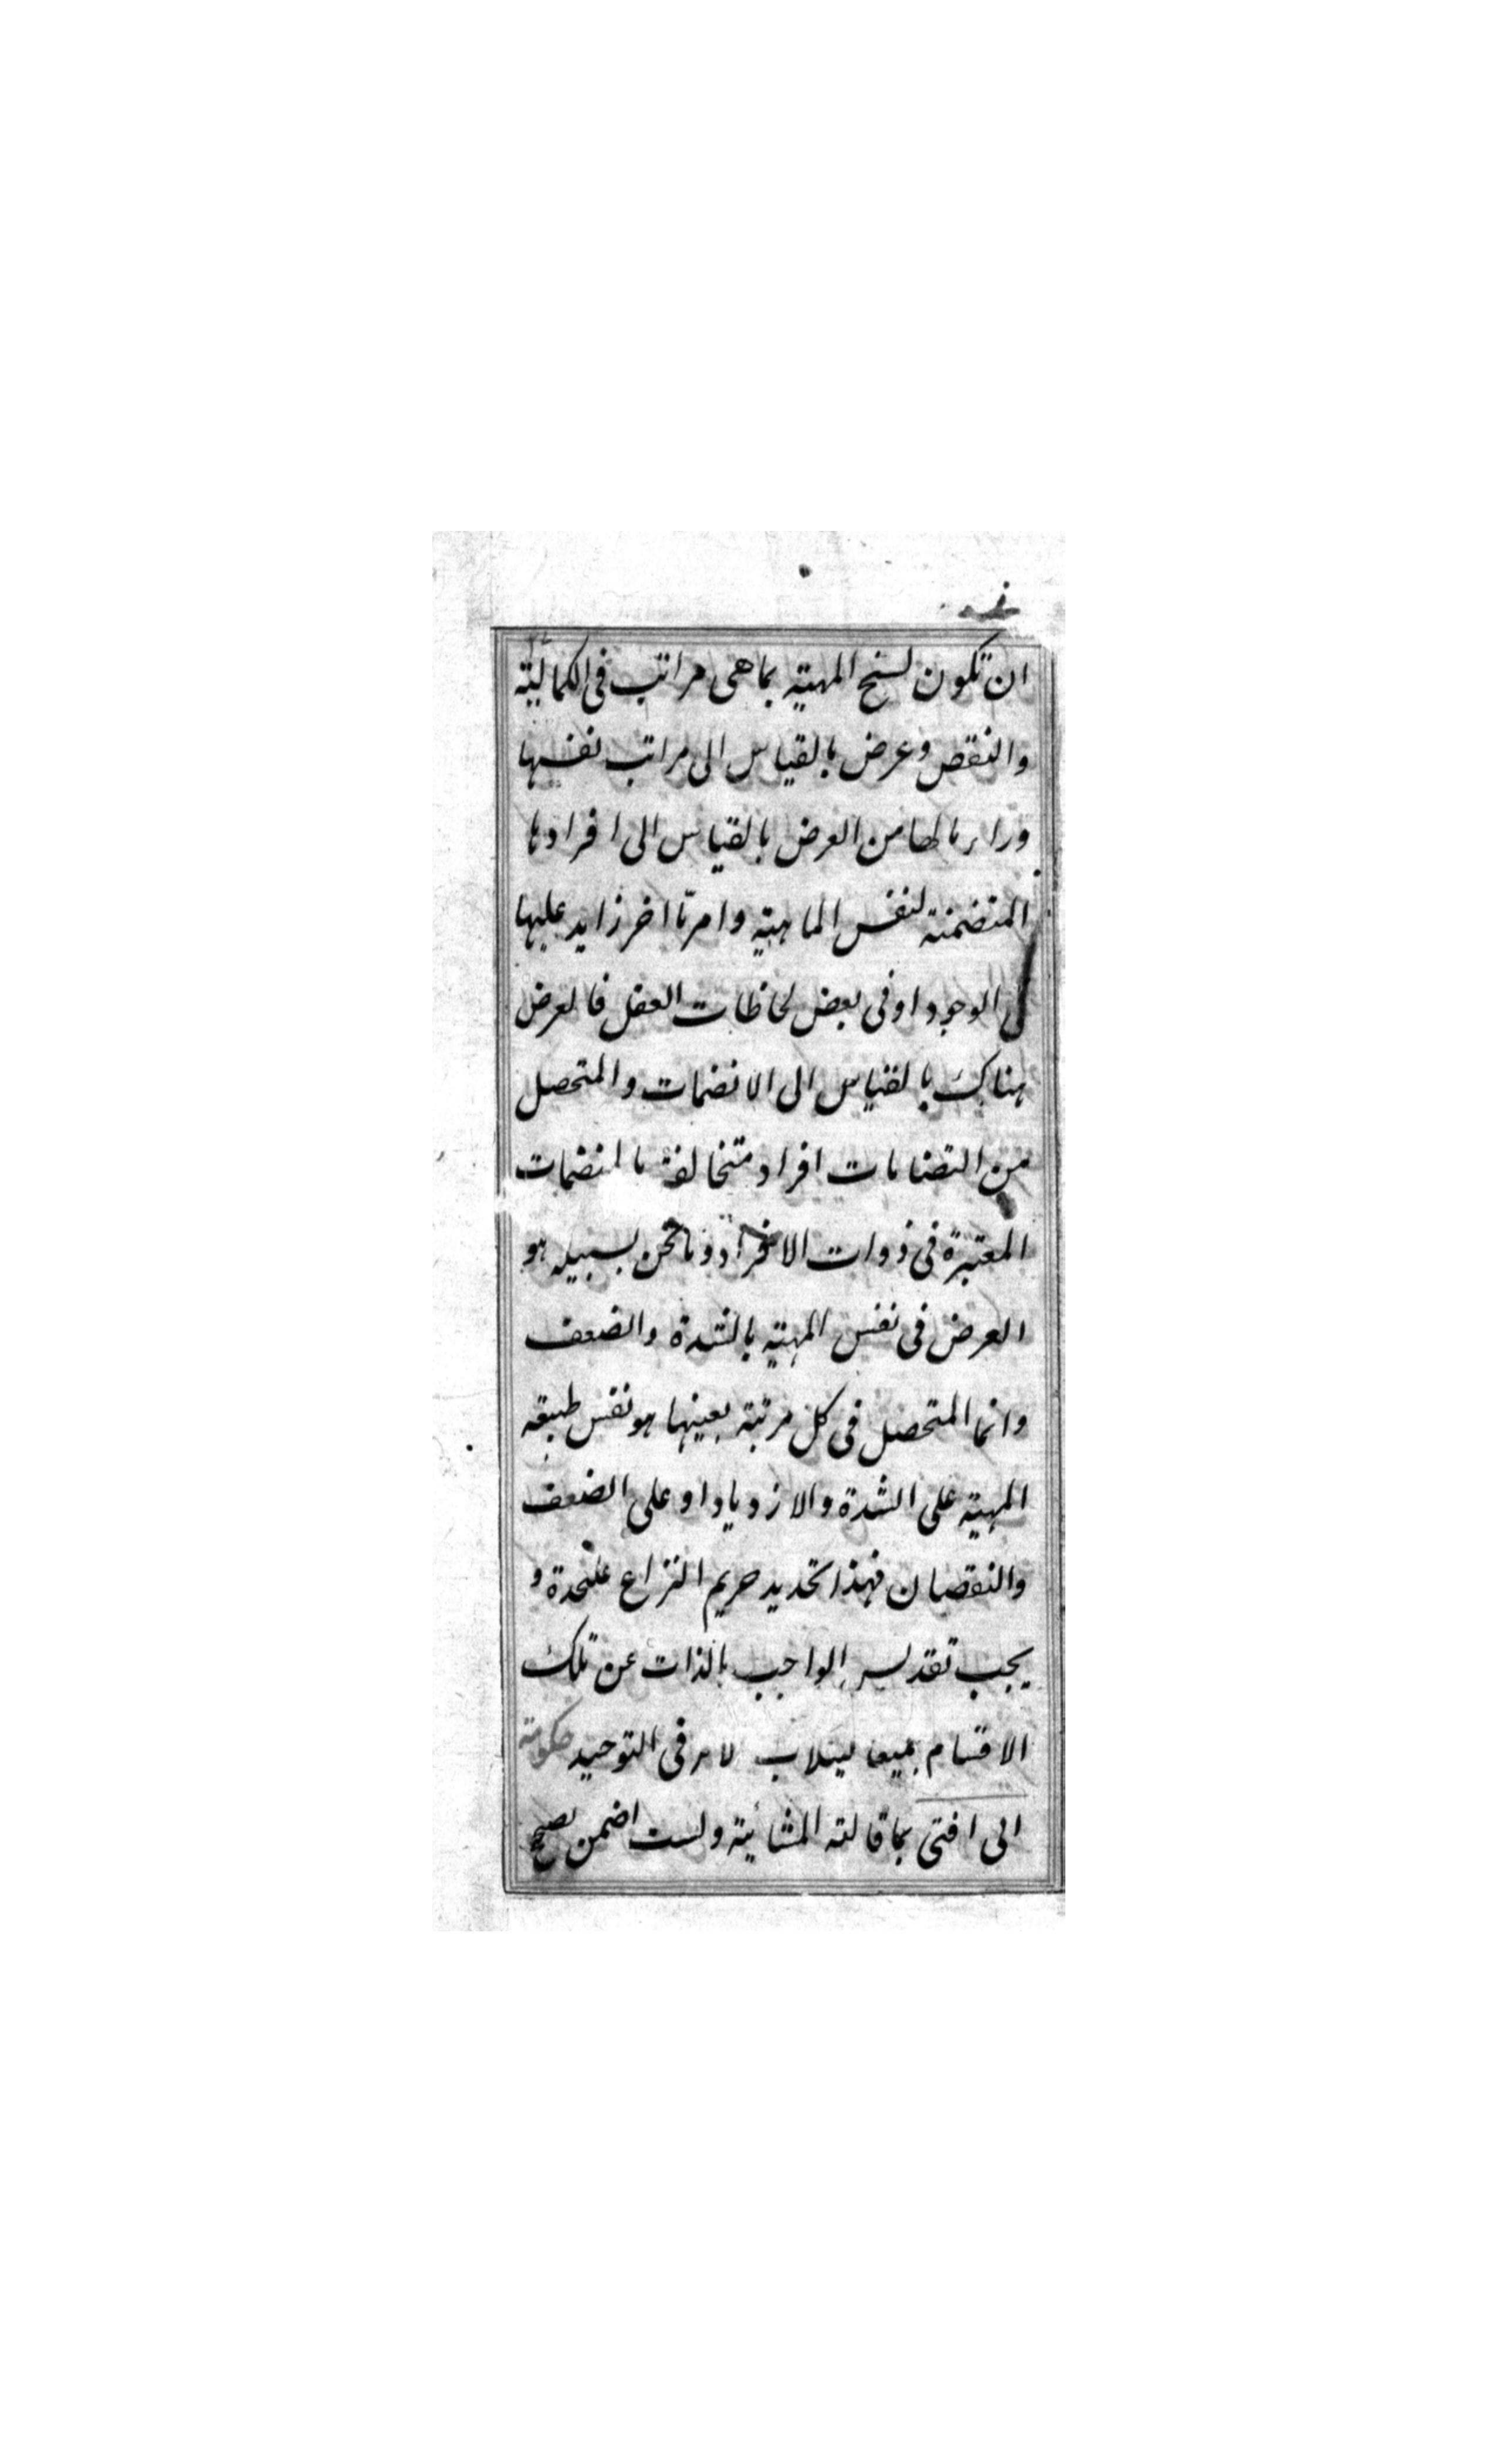 ان تكون لسنخ المهية بما هى مراتب فى الكمالية
والنقص وعرض بالقياس الى مراتب نفسها
وراء ما لها من العرض بالقياس الى افرادها
المتضمنة لنفس الماهية وامر ما اخر زايد عليها
فى الوجود او فى بعض لحاظات العقل فالعرض
هناك بالقياس الى الانضمات والمتحصل
من التضامات افراد متخالفة بالمنضمات
المعتبرة فى ذوات الافراد وما نحن بسبيله هو
العرض فى نفس المهية بالشدة والضعف
وانما المتحصل فى كل مرتبة بعينها هو نفس طبيعه
المهية على الشدة والازدياد او على الضعف
والنقصان فهذا تحديد حريم النزاع علىحدة و
يجب تقديس الواجب بالذات عن تلك
الاقسام جميعا الامر فى التوحيد حكومة
انى افتى بما قالته المشائية ولست اضمن نصح